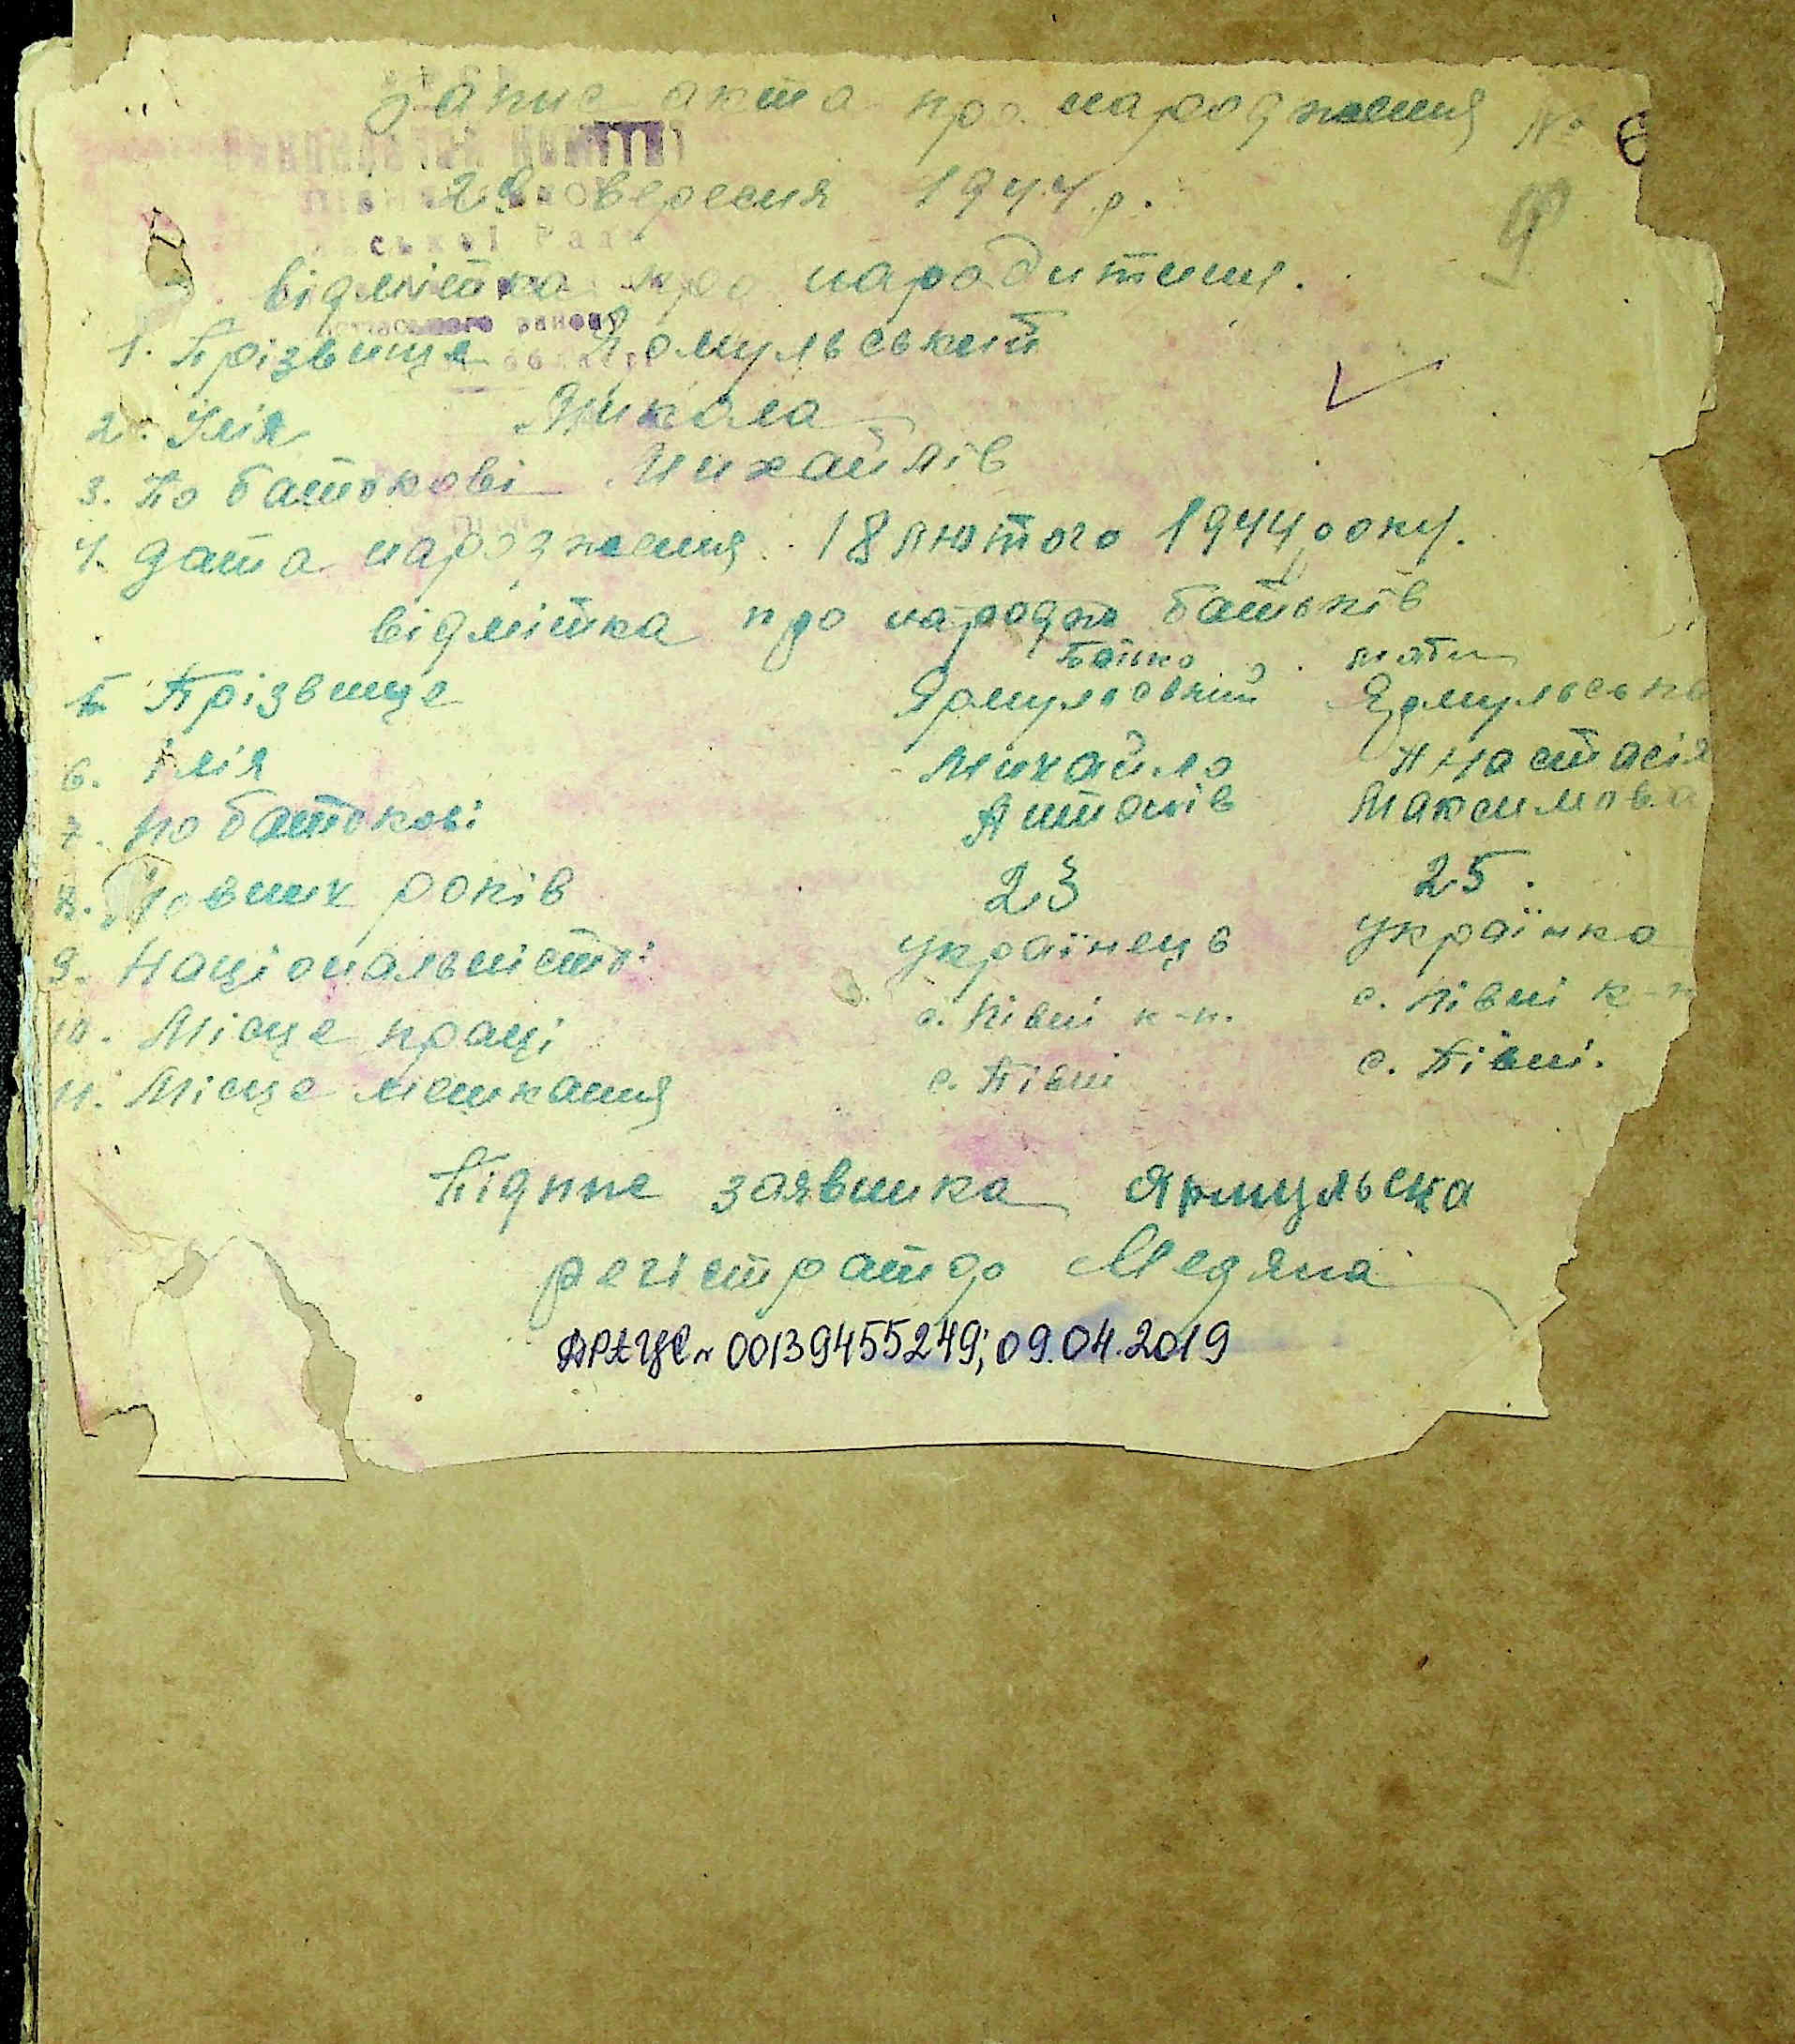 Запис акта про народження №6
9
29 вересня 1944 р.
ської Ради
відмітка про народитиня.
району
1. Прізвище Ярмульський
2. Імія Микола
3. По батокові Михайлів
4. дата народження. 18 лютого 1944 року.
відмітка про народж батьків
батько мати
5 Прізвище Ярмульський Ярмульська
6. Імія Михайло Анастасія
7. по батокові Антонів Максимова
8. Повних років 23 25.
9. Національністі українець українка
10. Місце праці с. Півні к-п. с. Півні к-п
11. Місце мешкання с. Півні с. Півні.
Підпис заявника Ярмульска
регістратор Медяна
ДРАЦСг 00139455249; 09.04.2019